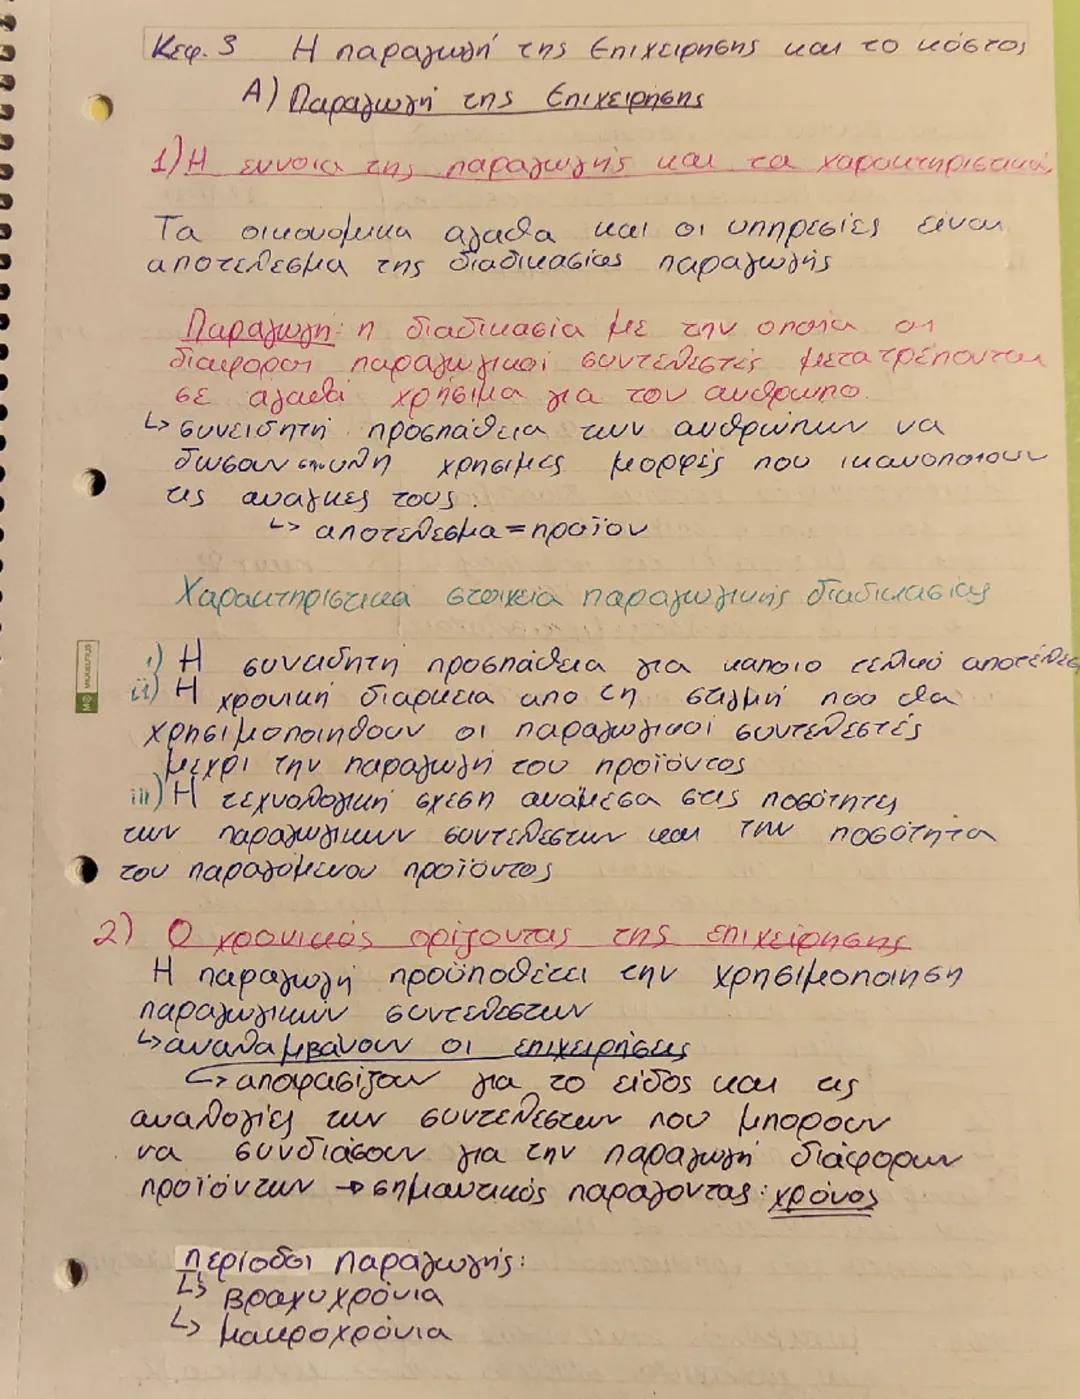 Κεφ. 3 Η παραγωγή της Επιχειρησης και το κόστος
Α) Παραγωγή της Επιχειρησης
1) Η εννοια της παραγωγής και τα χαρακτηριστικά
Τα οικονομικα αγαθα και οι υπηρεσίες είναι
αποτελεσμα της διαδικασίας παραγωγής
Παραγωγη: η διαδικασία με την οποια οι
διαφοροι παραγωγικοί συντελεστές μετατρέπονται
σε αγαθά χρήσιμα για τον ανθρωπο.
↳ συνειδητή προσπάθεια των ανθρώπων να
δωσουν στην υλη χρησιμες μορφές που ικανοποιουν
τις αναγκες τους.
↳ αποτελεσμα = προϊον
Χαρακτηριστικά στοιχεία παραγωγικής διαδικασίας
i) Η συνειδητη προσπάθεια για καποιο τελικό αποτέλεσ
ii) Η χρονική διαρκεια απο τη στιγμή που θα
χρησιμοποιηθουν οι παραγωγικοί συντελεστές
μεχρι την παραγωγή του προϊόντος
iii) Η τεχνολογική σχεση ανάμεσα στις ποσότητες
των παραγωγικων συντελεστων και την ποσότητα
του παραγόμενου προϊόντος
2) Ο χρονικός ορίζοντας της επιχείρησης
Η παραγωγή προϋποθέτει την χρησιμοποιηση
παραγωγικών συντελεστων
↳ αναλαμβάνουν οι επιχειρήσεις
↳ αποφασίζουν για το είδος και τις
αναλογίες των συντελεστων που μπορουν
να συνδιάσουν για την παραγωγή διάφορων
προϊόντων → σημαντικός παραγοντας: χρόνος
περίοδοι παραγωγής:
↳ βραχυχρόνια
↳ μακροχρόνια